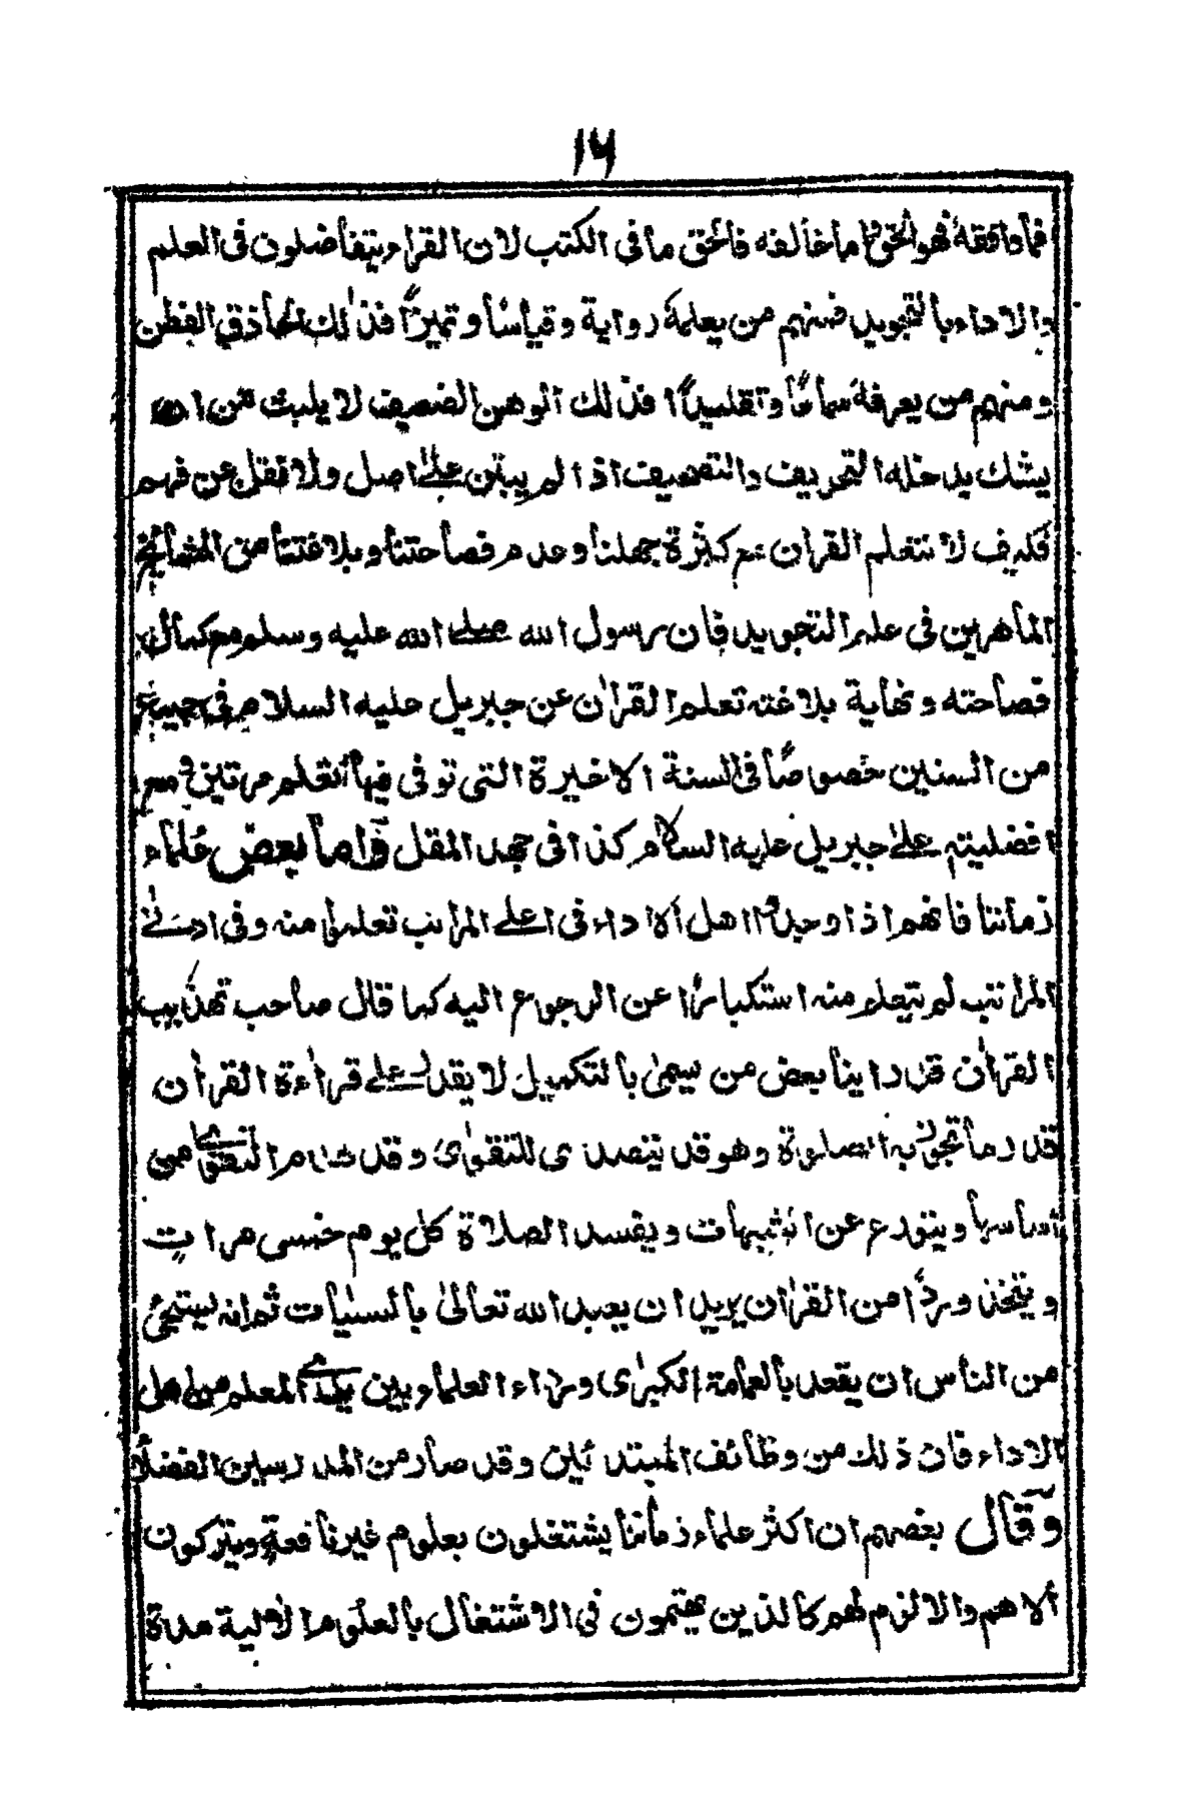 ١٦
فما وافقه فهو الحق وما خالفه فالحق ما فى الكتب لان القراء يتفاضلون فى العلم
والاداء بالتجويد فمنهم من يعلمه رواية وقياسًا وتميزًا فذٰلك الحاذق الفطن
ومنهم من يعرفه سماعًا وتقليدًا فذلك الوهن الضعيف لا يلبث من ان
يشك يدخله التحريف والتصحيف اذا لم يبتن علىٰ اصل ولا نقل عن فهم
فكيف لا نتعلم القران مع كثرة جهلنا وعدم فصاحتنا وبلاغتنا من المشائخ
الماهرين فى علم التجويد فان رسول الله صلى الله عليه وسلم مع كمال
فصاحته ونهاية بلاغته تعلم القراٰن عن جبريل عليه السلام فى جميع
من السنين خصوصًا فى السنة الاخيرة التى توفى فيها تعلم مرتين ومع
افضليته علىٰ جبريل عليه السلام كذا فى جهد المقل وٓاما بعض علماء
زماننا فانهم اذا وجدوا اهل الاداء فى اعلى المراتب تعلموا منه وفى ادنىٰ
المراتب لم يتعلم منه استكبارًا عن الرجوع اليه كما قال صاحب تهذيب
القراٰن قد راينا بعض من يسمىٰ بالتكميل لا يقدر على قراٰءة القراٰن
قدر ما تجوز به الصلوة وهو قد يتصدى للتقوٰى وقد هدم التقوىٰ من
اساسها ويتورع عن الشبهات ويفسد الصلاة كل يوم خمس مرات
ويتخذ وردًا من القراٰن يريد ان يعبد الله تعالىٰ بالسيئات ثم انه يستحيئ
من الناس ان يقعد بالعمامة الكبرٰى ورداء العلماء بين يدى المعلم من اهل
الاداء فان ذلك من وظائف المبتدئين وقد صار من المدرسين الفضلا
وٓقال بعضهم ان اكثر علماء زماننا يشتغلون بعلوم غير نافعة ويتركون
الاهم والالزم لهم كالذين يهتمون فى الاشتغال بالعلوم الاٰلية مدة